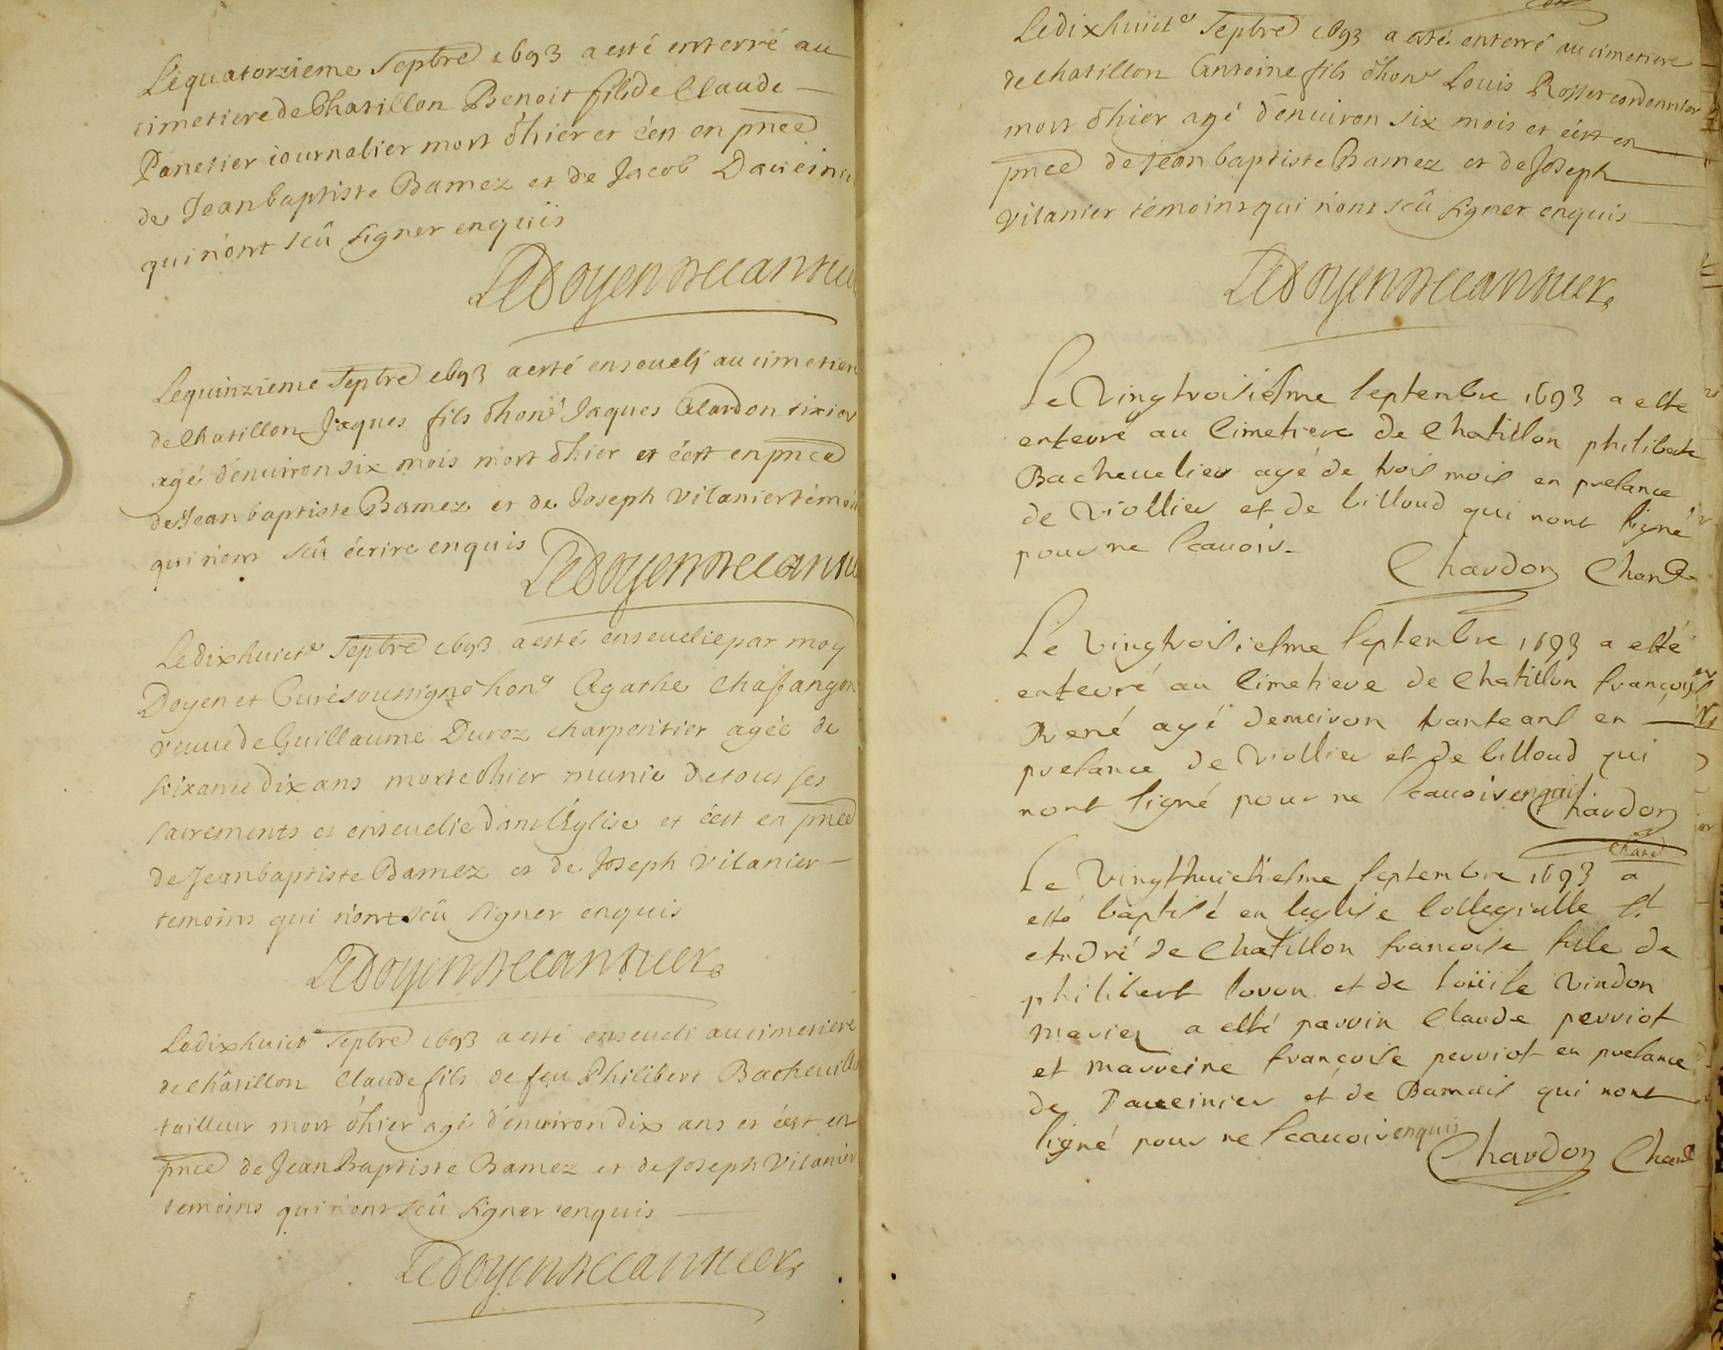 Le quatorzieme Septbre 1693 a esté enterré au
cimetiere de Chatillon Benoit fils de Claude
Panetier iournalier mort d'hier et c'est en pnce
de Jean baptiste Bamez et de Jacob
qui n'ont sçû signer enquis
Le Doyen
Le quinzieme Septbre 1693 a esté ensevelj au cimetiere
de Chatillon Jaques fils d'hone Jaques
agé d'environ six mois mort d'hier et c'est en pnce
de Jean baptiste Bamez et de Joseph Vilanier témoins
qui n'ont sçû écrire enquis
Le Doyen
Le dixhuicte Septbre 1693 a esté ensevelie par moy
Doyen et Curé soussigné hone Agathe Chassangon
veuve de Guillaume Duroz charpentier agée de
soixante dix ans morte d'hier munie de tous ses
sacrements et ensevelie dans l'Eglise et c'est en pnce
de Jean baptiste Bamez et de Joseph Vilanier
temoins qui n'ont sçû signer enquis
Le Doyen
Le dixhuicte Septbre 1693 a esté enseveli au cimetiere
de Châtillon Claude fils de feu Philibert
tailleur mort d'hier agé d'environ dix ans et c'est en
pnce de Jean Baptiste Bamez et de Joseph Vilanier
temoins qui n'ont sçû signer enquis
Le Doyen
Le dixhuicte Septbre 1693 a esté enterré au cimetiere
de Chatillon Antoine fils d'hone Louis Rosser cordonnier
mort d'hier agé d'environ six mois et c'est en
pnce de Jean baptiste Bamez et de Joseph
Vilanier témoins qui n'ont sçû signer enquis
Le Doyen
Le Vingtroisiesme septembre 1693 a esté
enterré au Cimetiere de Chatillon philiberte
Bachevelier agé de trois mois en presance
de Viollier et de billoud qui nont signé
pour ne scauoir
Chardon Chan
Le Vingtroisiesme septembre 1693 a esté
enterré au Cimetiere de Chatillon françois
René agé demviron trante ans en
presance de Viollier et de billoud qui
nont signé pour ne scauoir enquis
Chardon
Chan
Le Vingthuictiesme septembre 1693 a
esté baptisé en leglise Collegialle St
André de Chatillon francoise fille de
philibert lovon et de loüise Vindon
mariez a esté parrin Claude perriot
et marreine françoise perriot en presance
de et de Bamais qui nont
signé pour ne scauoir enquis
Chardon Chan